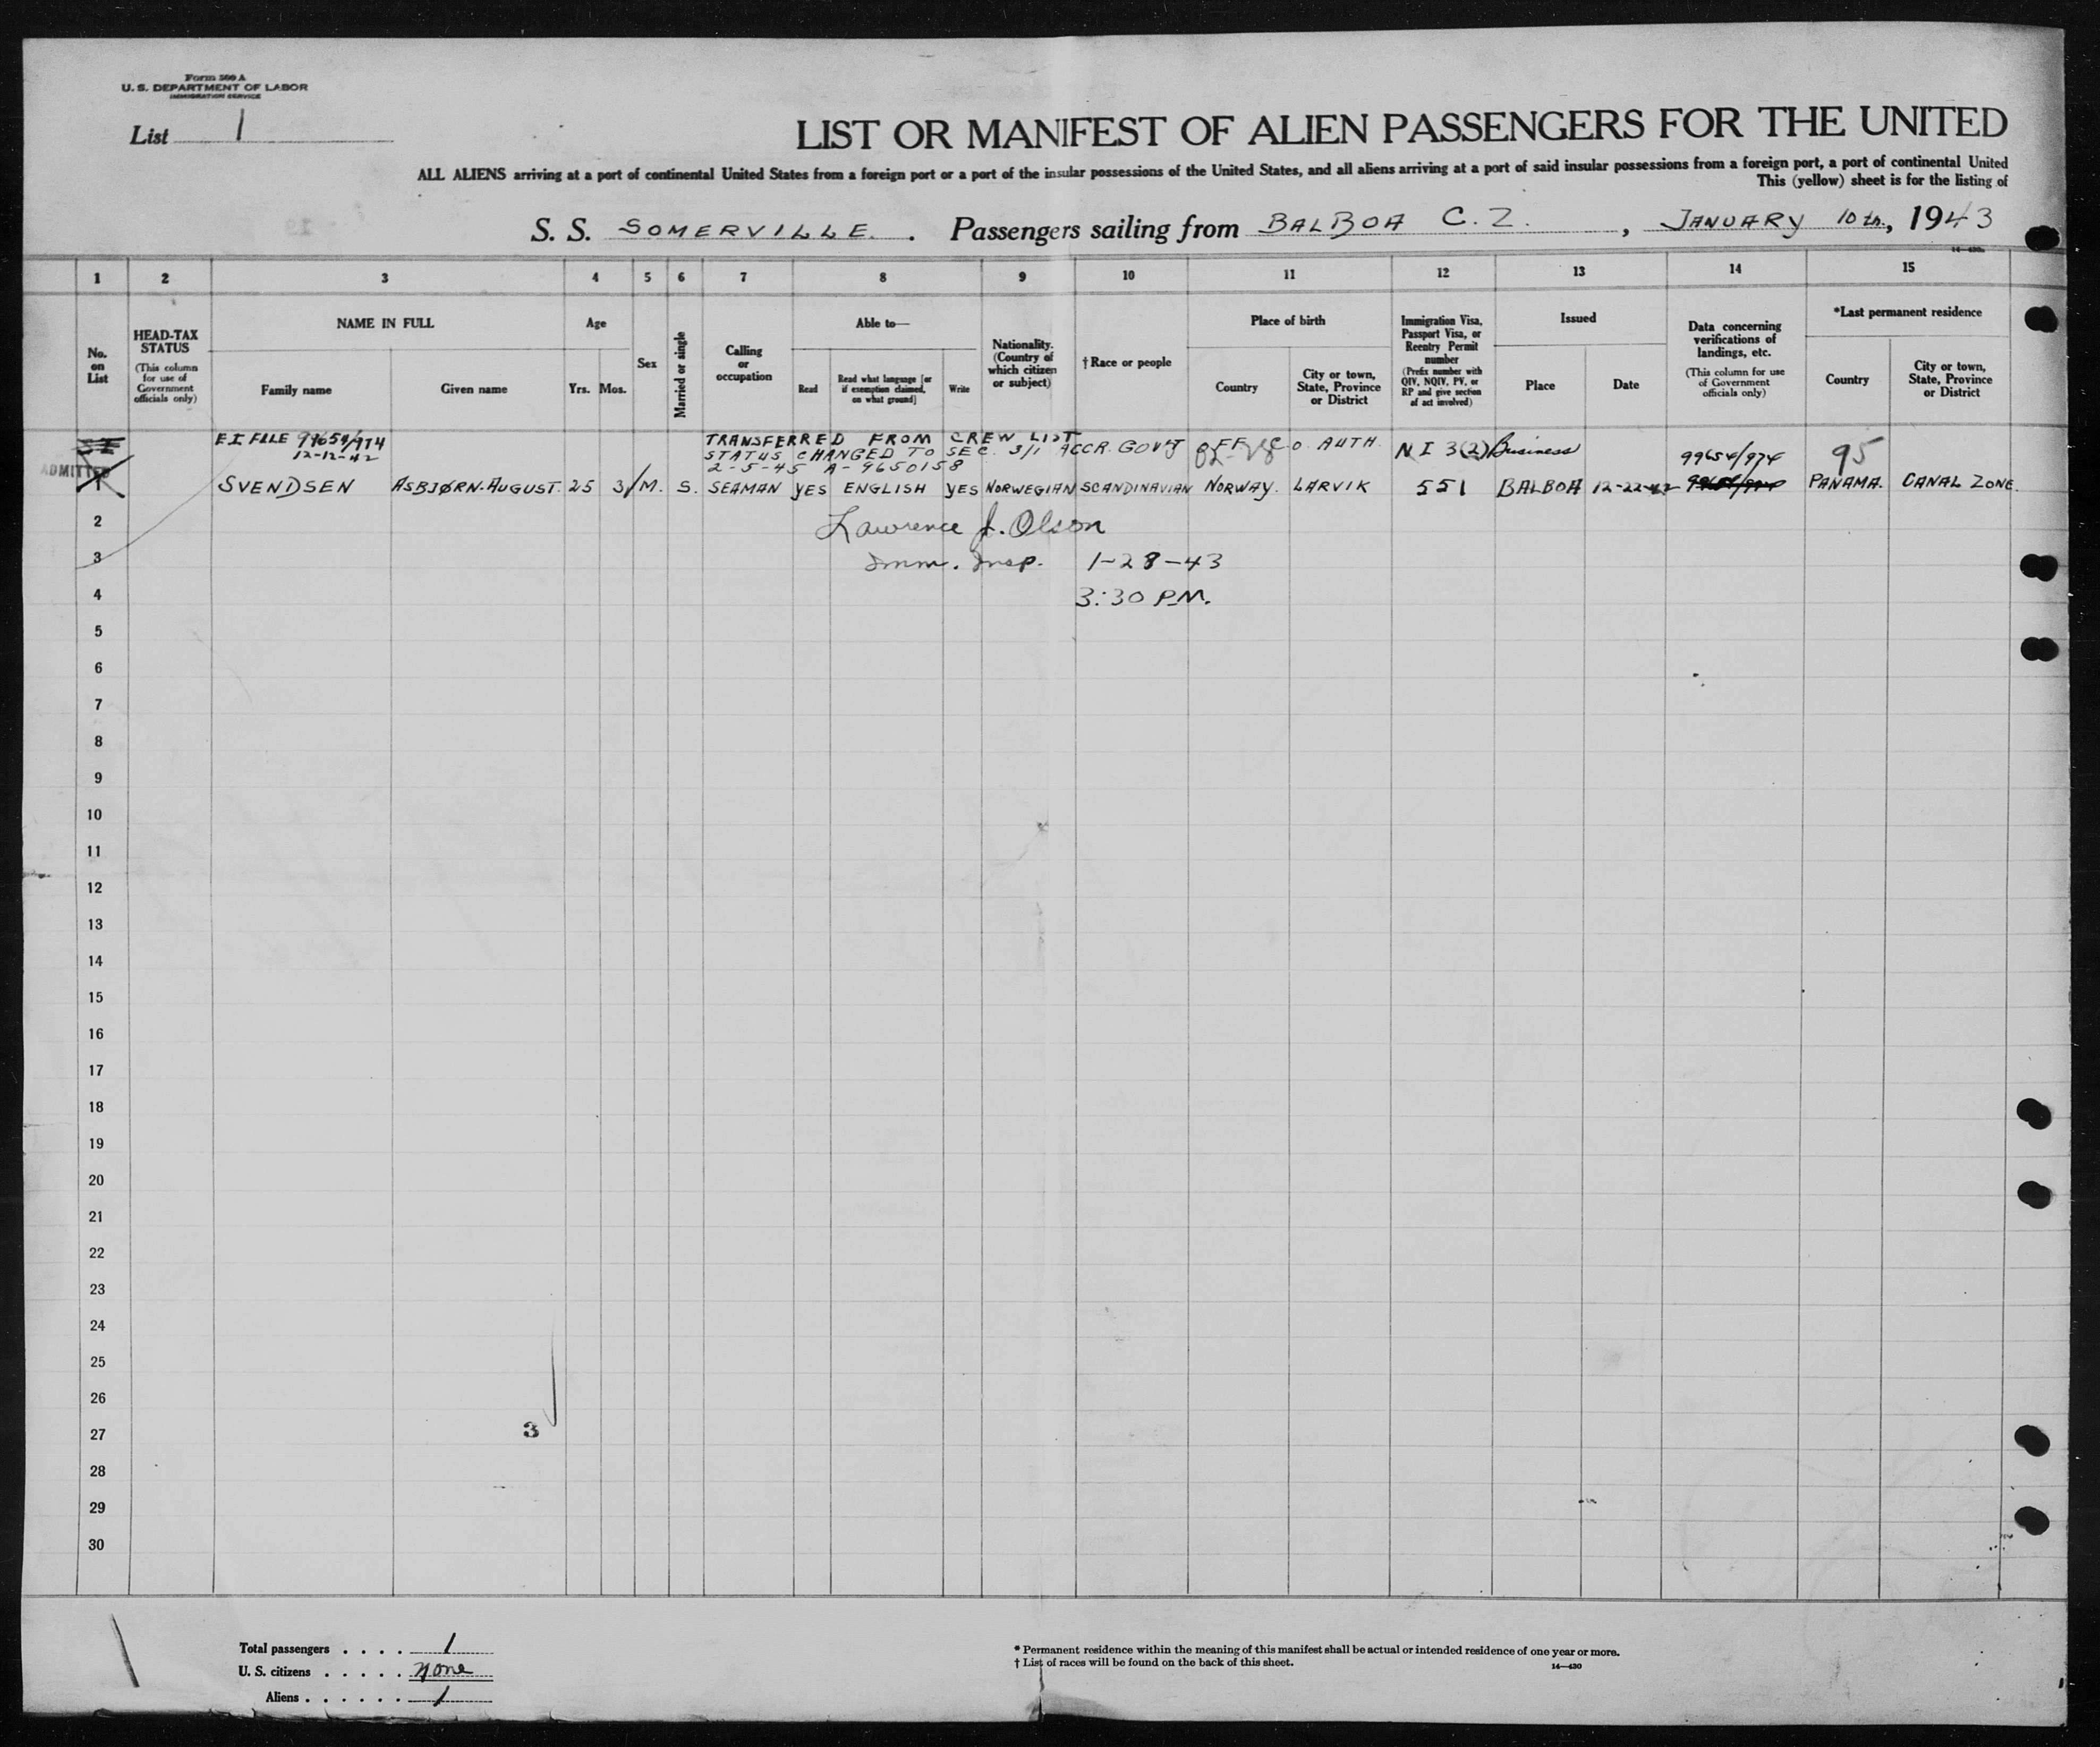 Form 500 A
U. S. DEPARTMENT OF LABOR
IMMIGRATION SERVICE
List 1
LIST OR MANIFEST OF ALIEN PASSENGERS FOR THE UNITED
ALL ALIENS arriving at a port of continental United States from a foreign port or a port of the insular possessions of the United States, and all aliens arriving at a port of said insular possessions from a foreign port, a port of continental United
This (yellow) sheet is for the listing of
S. S. SOMERVILLE. Passengers sailing from BALBOA C. Z. , JANUARY 10th, 1943
14-430
1 2 3 4 5 6 7 8 9 10 11 12 13 14 15
No. on List
HEAD-TAX STATUS (This column for use of Government officials only)
NAME IN FULL
Family name Given name
Age
Yrs. Mos.
Sex
Married or single
Calling or occupation
Able to—
Read Read what language [or if exemption claimed, on what ground] Write
Nationality. (Country of which citizen or subject)
† Race or people
Place of birth
Country City or town, State, Province or District
Immigration Visa, Passport Visa, or Reentry Permit number (Prefix number with QIV, NQIV, PV, or RP and give section of act involved)
Issued
Place Date
Data concerning verifications of landings, etc. (This column for use of Government officials only)
*Last permanent residence
Country City or town, State, Province or District
EI FILE 99654/974
12-12-42
TRANSFERRED FROM CREW LIST
STATUS CHANGED TO SEC. 3/1 ACCR. GOV'T OFF C.O. AUTH.
2-5-45 A-9650158
N I 3(2) Business
99654/974
95
ADMITTED
1 SVENDSEN ASBJØRN-AUGUST. 25 3 M. S. SEAMAN YES ENGLISH YES NORWEGIAN SCANDINAVIAN NORWAY. LARVIK 551 BALBOA 12-22-42 PANAMA. CANAL ZONE.
2 Lawrence J. Olson
3 Imm. Insp. 1-28-43
4 3:30 P.M.
5
6
7
8
9
10
11
12
13
14
15
16
17
18
19
20
21
22
23
24
25
26
27 3
28
29
30
Total passengers . . . . 1
U. S. citizens . . . . . none
Aliens . . . . . . 1
* Permanent residence within the meaning of this manifest shall be actual or intended residence of one year or more.
† List of races will be found on the back of this sheet. 14—430